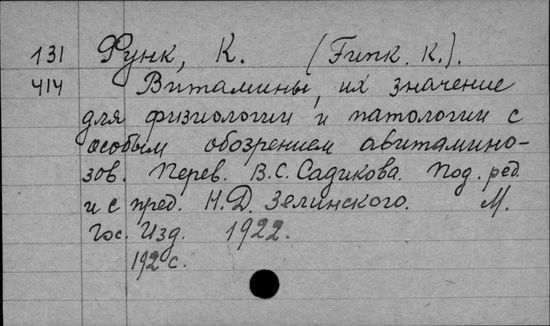 131 Функ, К. (Funk. К.).
414 Витамины, их значение
для физиологии и патологии с
особым обозрением авитамино-
зов. Перев. В.С. Садикова. Под. ред.
и с пред. Н.Д. Зелинского. М.
Гос. Изд. 1922.
192 с.